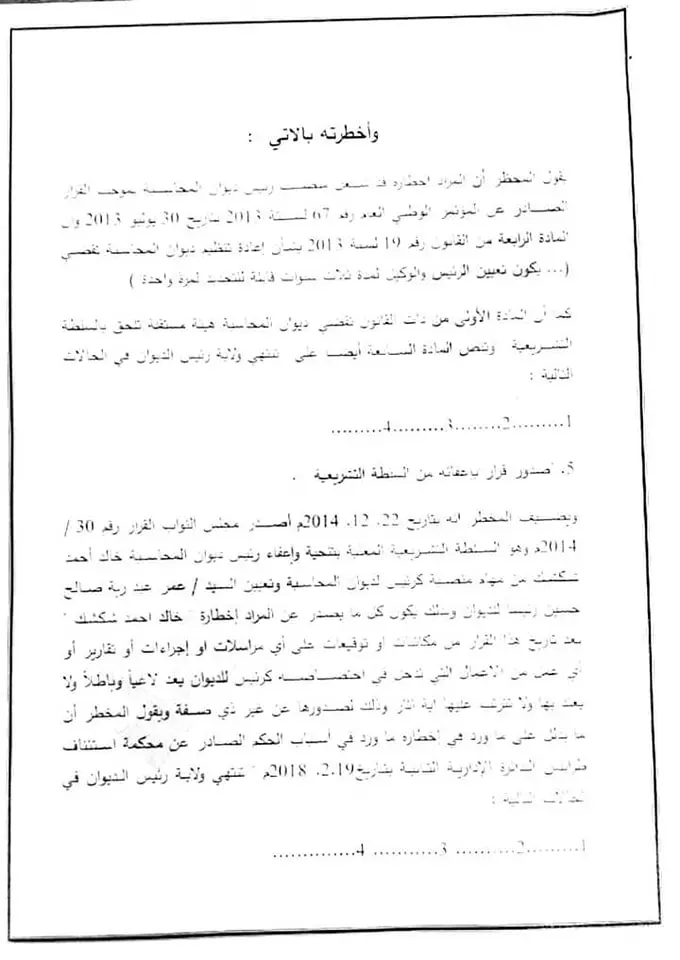 وأخطرته بالاتي :
يقول المخطر أن المراد اخطاره قد شغل منصب رئيس ديوان المحاسبة بموجب القرار
الصادر عن المؤتمر الوطني العام رقم 67 لسنة 2013 بتاريخ 30 يوليو 2013 وان
المادة الرابعة من القانون رقم 19 لسنة 2013 بشأن إعادة تنظيم ديوان المحاسبة تقضي
(... يكون تعيين الرئيس والوكيل لمدة ثلاث سنوات قابلة للتجديد لمرة واحدة )
كما أن المادة الأولى من ذات القانون تقضي ديوان المحاسبة هيئة مستقلة تلحق بالسلطة
التشريعية وتنص المادة السابعة أيضا على تنتهي ولاية رئيس الديوان في الحالات
التالية :
1..........2.........3..........4.........
5. صدور قرار بإعفائه من السلطة التشريعية .
ويضيف المخطر انه بتاريخ 22. 12. 2014م أصدر مجلس النواب القرار رقم 30 /
2014م وهو السلطة التشريعية المعنية بتنحية وإعفاء رئيس ديوان المحاسبة خالد أحمد
شكشك من مهام منصبة كرئيس لديوان المحاسبة وتعيين السيد / عمر عبد ربة صالح
حسين رئيسا للديوان وبذلك يكون كل ما يصدر عن المراد إخطارة " خالد احمد شكشك "
بعد تاريخ هذا القرار من مكاتبات او توقيعات على أي مراسلات او إجراءات أو تقارير أو
أي عمل من الاعمال التي تدخل في اختصاصه كرئيس للديوان يعد لاغياً وباطلاً ولا
يعتد بها ولا تترتب عليها اية اثار وذلك لصدورها عن غير ذي صفة ويقول المخطر أن
ما يدلل على ما ورد في إخطاره ما ورد في أسباب الحكم الصادر عن محكمة استئناف
طرابلس الدائرة الإدارية الثانية بتاريخ 2.19. 2018م " تنتهي ولاية رئيس الديوان في
الحالات التالية :
1..........2........... 3........... 4..............